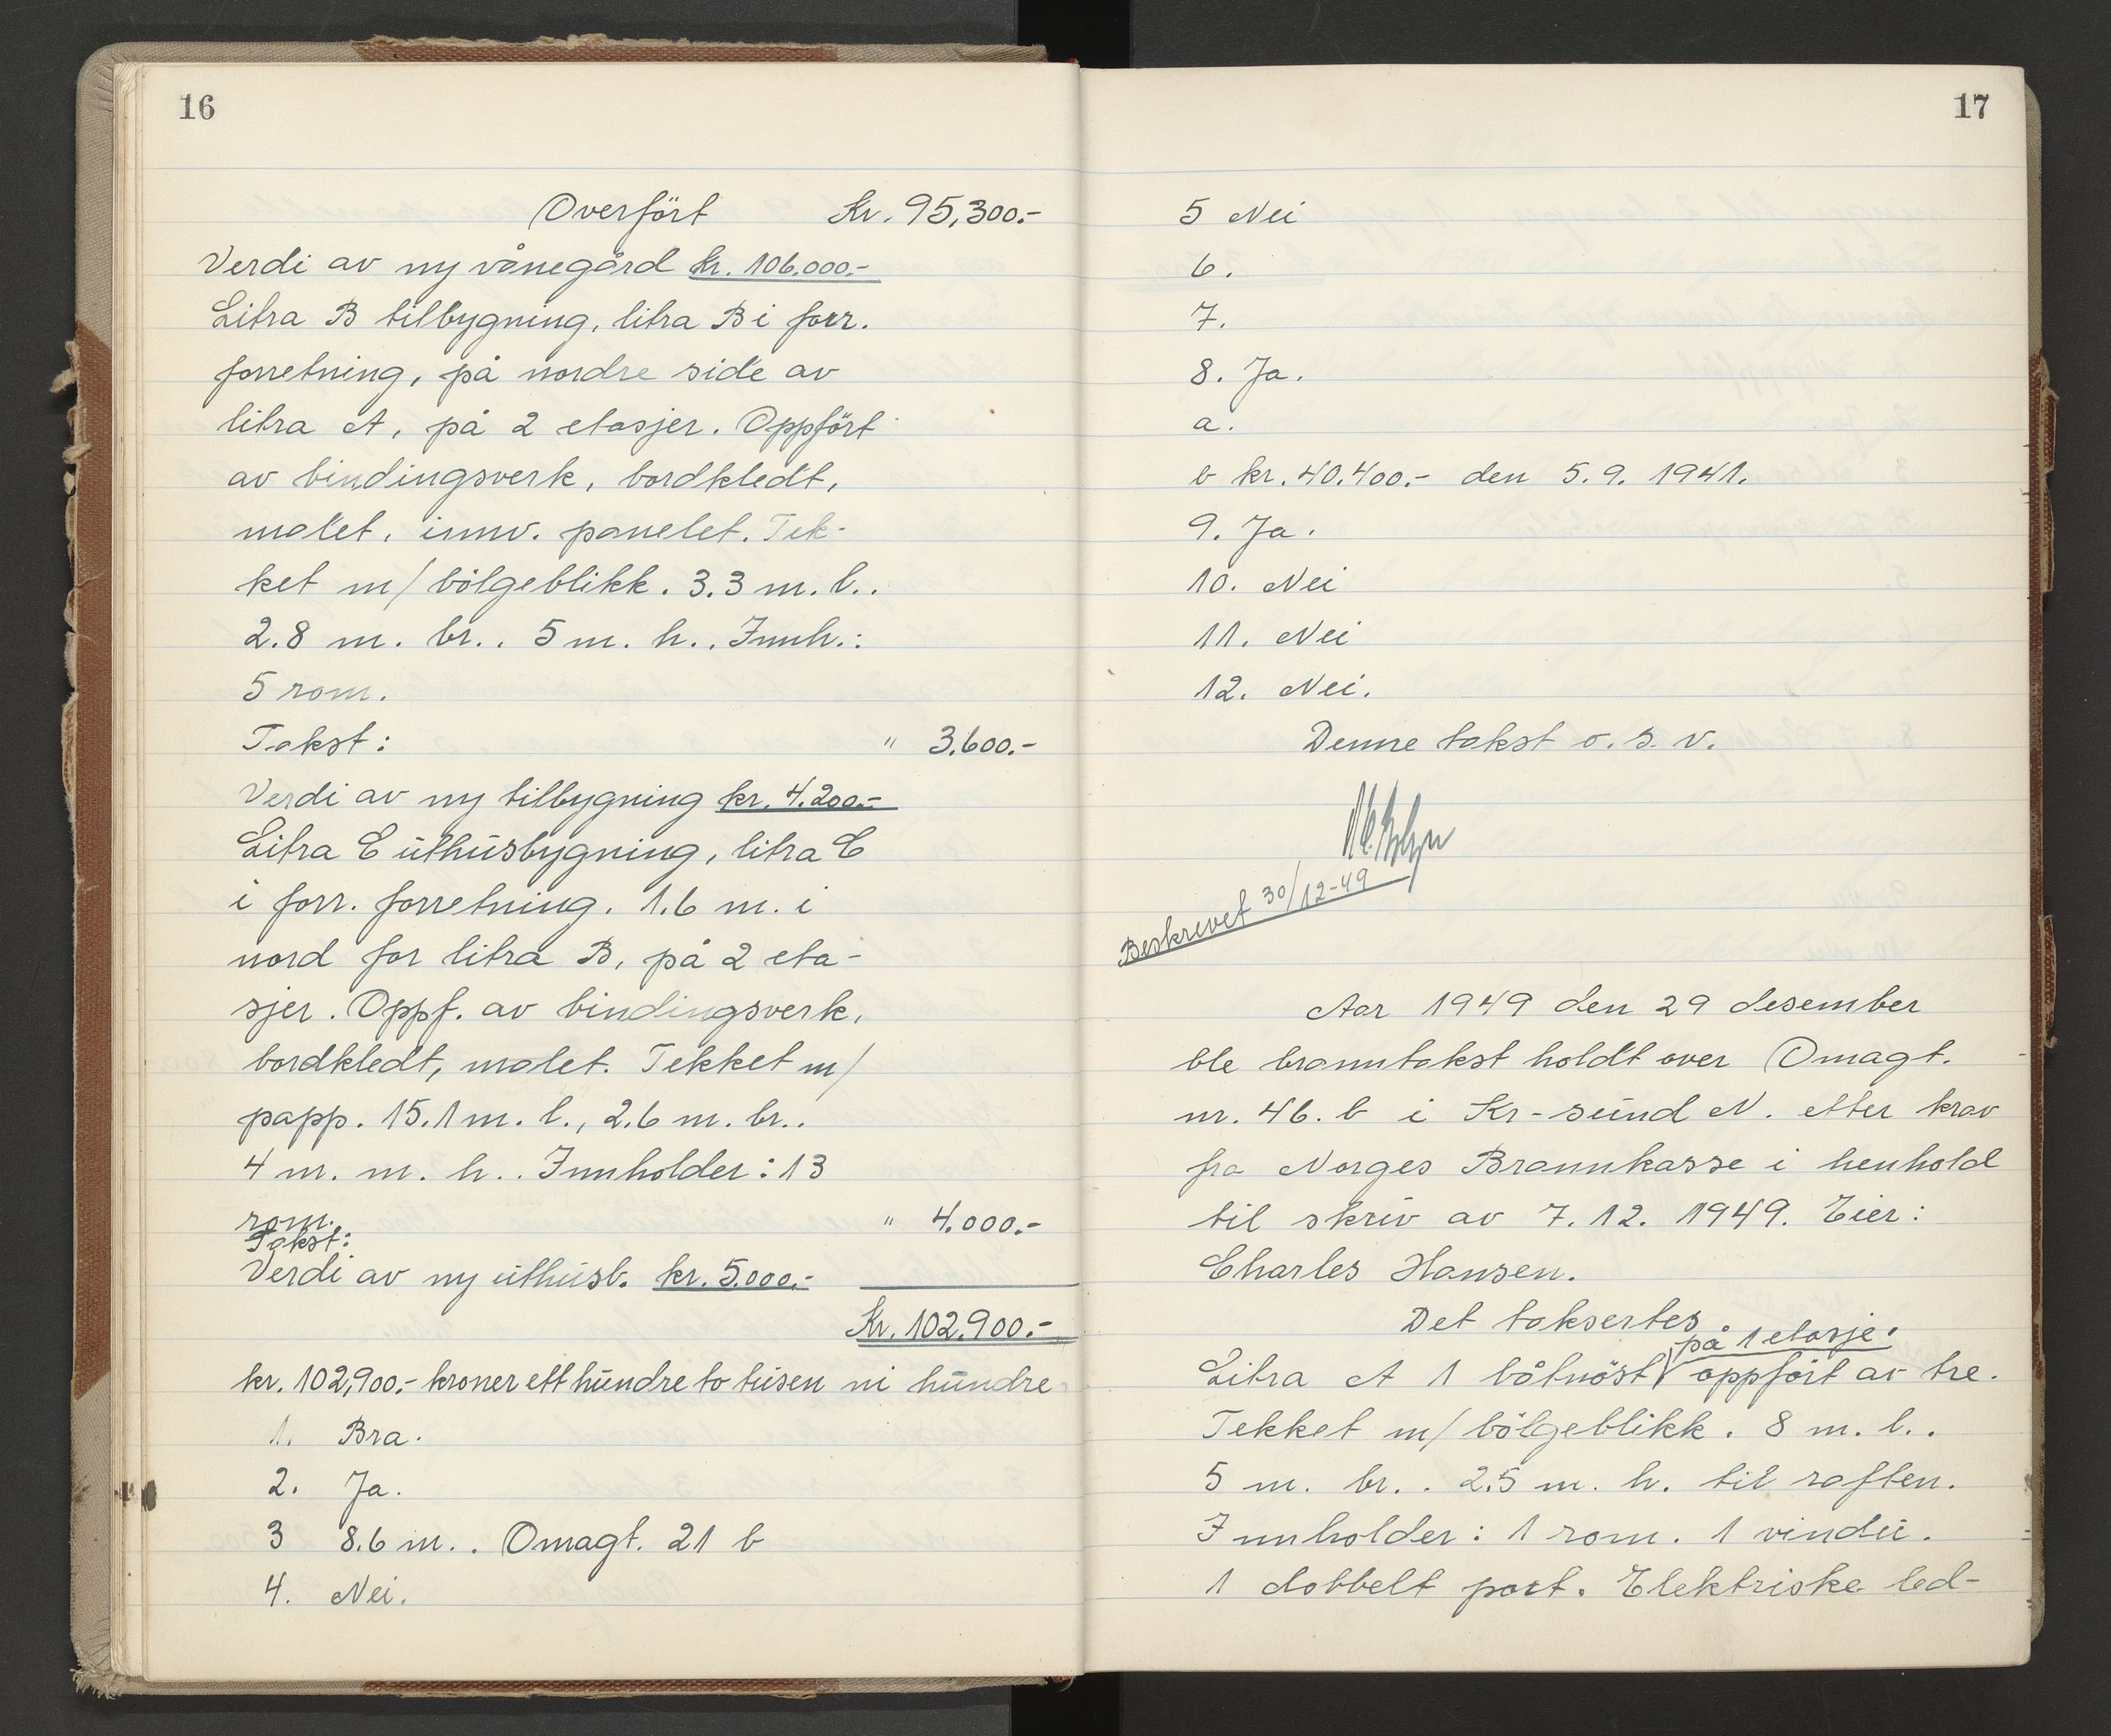 16
Overfört Kr. 95,300.-
Verdi av ny vånegård kr. 106.000.-
Litra B tilbygning, litra B i forr.
forretning, på nordre side av
litra A, på 2 etasjer. Oppfört
av bindingsverk, bordkledt,
malet, innv. panelet. Tek-
ket m/ bölgeblikk. 3.3 m. l..
2.8 m. br.. 5 m. h.. Innh.:
5 rom.
Takst: " 3.600.-
Verdi av ny tilbygning kr. 4.200.-
Litra C uthusbygning, litra C
i forr. forretning. 1.6 m. i
nord for litra B, på 2 eta-
sjer. Oppf. av bindingsverk,
bordkledt, malet. Tekket m/
papp. 15.1 m. l., 2.6 m. br..
4 m. m. h.. Innholder: 13
rom.
Takst: " 4.000.-
Verdi av ny uthusb. kr. 5.000.-
Kr. 102.900.-
kr. 102,900.- kroner ett hundre to tusen ni hundre
1. Bra.
2. Ja.
3 8.6 m.. Omagt. 21 b
4. Nei.
17
5 Nei
6.
7.
8. Ja.
a.
b kr. 40.400.- den 5.9. 1941.
9. Ja.
10. Nei
11. Nei
12. Nei.
Denne takst o. s. v.
Beskrevet 30/12-49
Aar 1949 den 29 desember
ble branntakst holdt over Omagt.
nr. 46. b i Kr-sund N. etter krav
fra Norges Brannkasse i henhold
til skriv av 7.12. 1949. Eier:
Charles Hansen.
Det taksertes
på 1 etasje.
Litra A 1 båtnöst oppfört av tre.
Tekket m/ bölgeblikk. 8 m. l..
5 m. br.. 2.5 m. h. til raften.
Innholder: 1 rom. 1 vindu.
1 dobbelt port. Elektriske led-